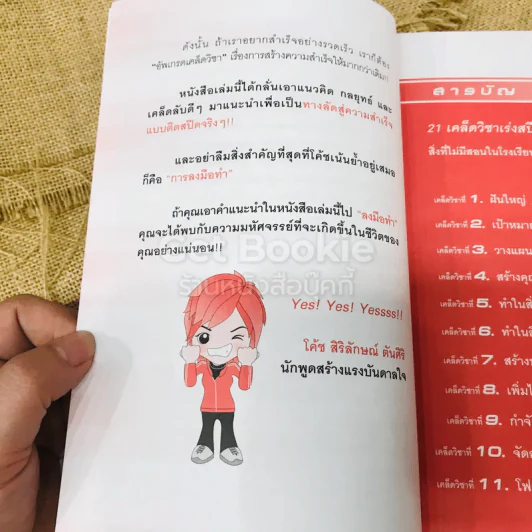 ดังนั้น ถ้าเราอยากสำเร็จอย่างรวดเร็ว เราก็ต้อง
"อัพเกรดเคล็ดวิชา" เรื่องการสร้างความสำเร็จให้มากกว่าเดิม!!
หนังสือเล่มนี้ได้กลั่นเอาแนวคิด กลยุทธ์ และ
เคล็ดลับดีๆ มาแนะนำเพื่อเป็นทางลัดสู่ความสำเร็จ
แบบติดสปีดจริงๆ!!
และอย่าลืมสิ่งสำคัญที่สุดที่โค้ชเน้นย้ำอยู่เสมอ
ก็คือ "การลงมือทำ"
ถ้าคุณเอาคำแนะนำในหนังสือเล่มนี้ไป "ลงมือทำ"
คุณจะได้พบกับความมหัศจรรย์ที่จะเกิดขึ้นในชีวิตของ
คุณอย่างแน่นอน!!
Bookie
ร้านหนังสือบุ๊คกี้
Yes! Yes! Yessss!!
โค้ช สิริลักษณ์ ตันศิริ
นักพูดสร้างแรงบันดาลใจ
สารบัญ
21 เคล็ดวิชาเร่งสปี
สิ่งที่ไม่มีสอนในโรงเรียน
เคล็ดวิชาที่ 1. ฝันใหญ่
เคล็ดวิชาที่ 2. เป้าหมาย
เคล็ดวิชาที่ 3. วางแผน
เคล็ดวิชาที่ 4. สร้างคุณ
เคล็ดวิชาที่ 5. ทำในสิ
เคล็ดวิชาที่ 6. ทำในสิ
เคล็ดวิชาที่ 7. สร้าง
เคล็ดวิชาที่ 8. เพิ่ม
เคล็ดวิชาที่ 9. กำจั
เคล็ดวิชาที่ 10. จัด
เคล็ดวิชาที่ 11. โฟ